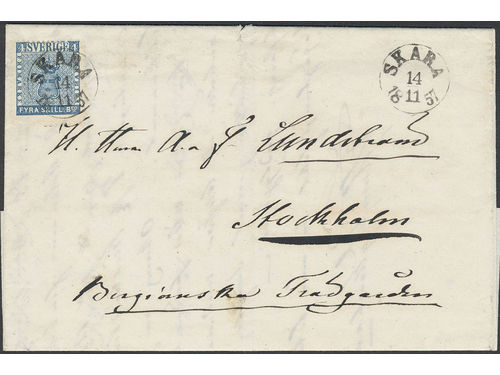 4 SVERIGE 4
FYRA SKILL. Bco
SKARA
14
11
18 57
SKARA
14
11
18 57
H. Herr A. a F. Lundstrand
Stockholm
Bergianska Trädgården